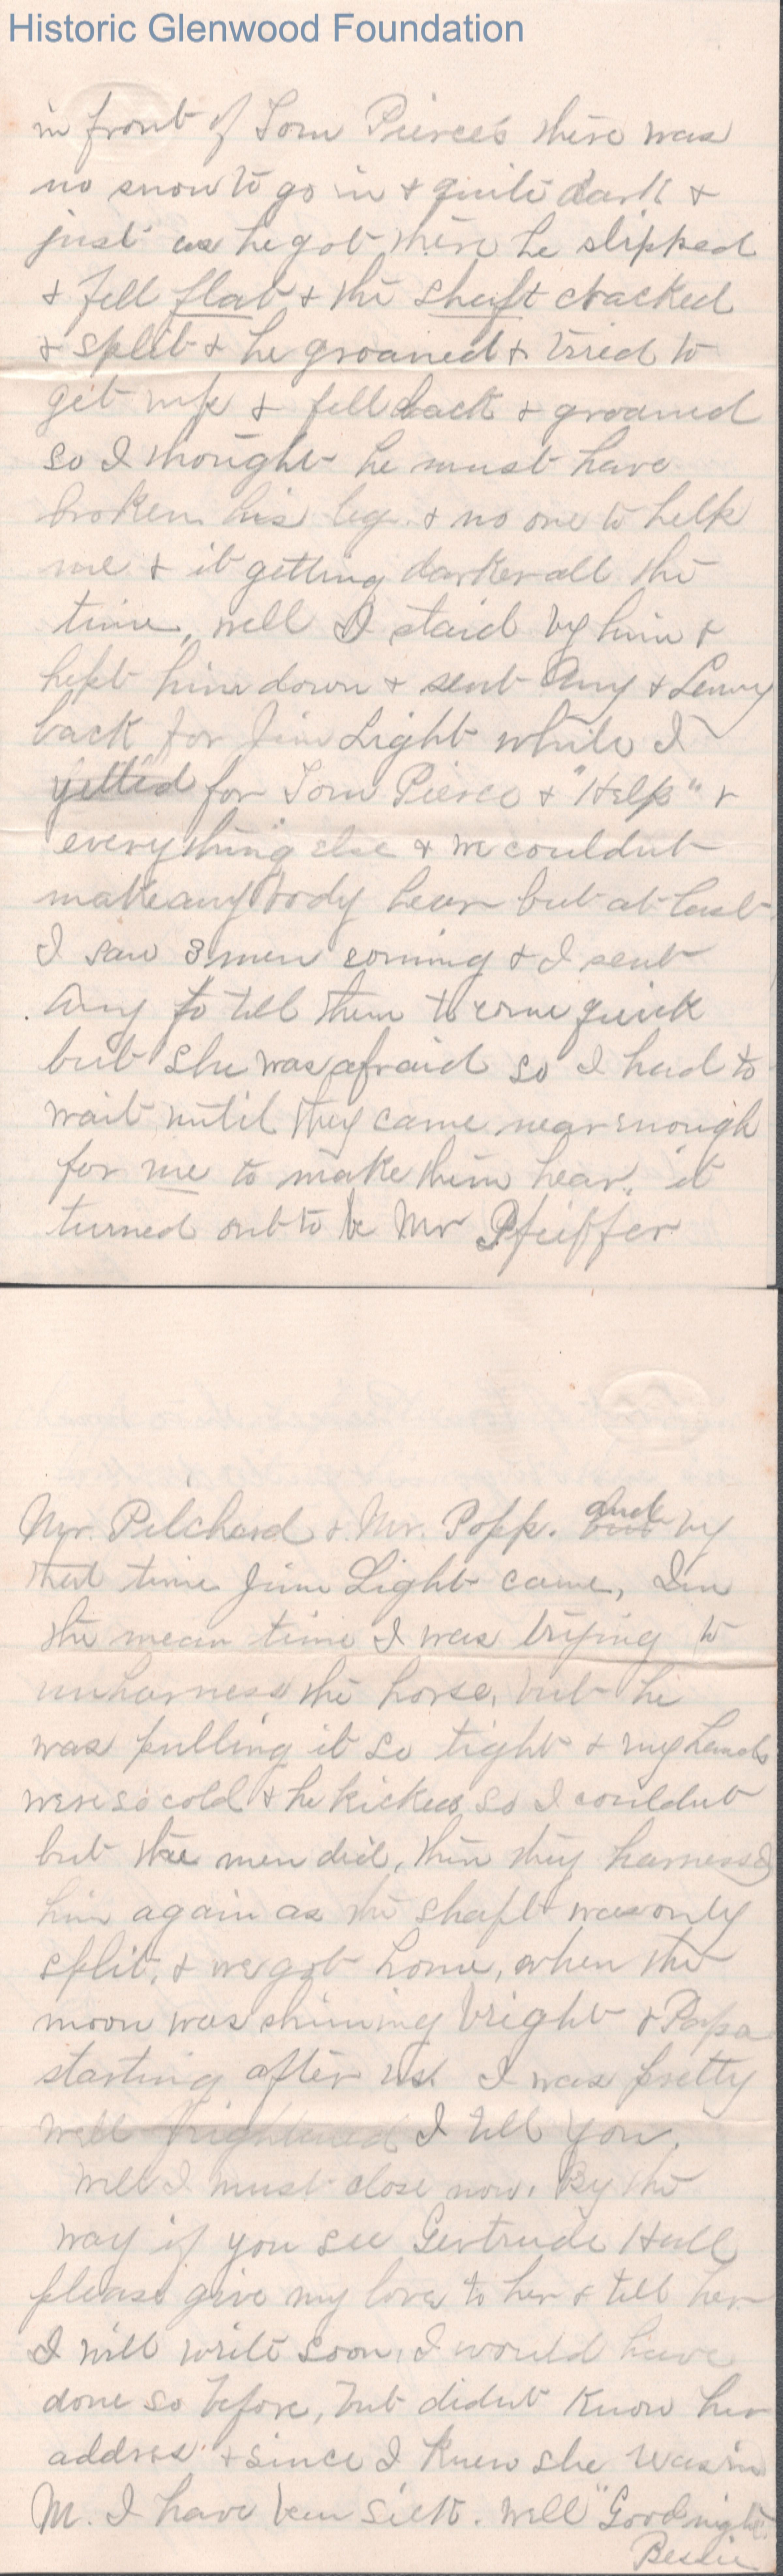 Historic Glenwood Foundation
in front of Tom Pierce's there was
no snow to go in & quite dark &
just as he got there he slipped
& fell flat & the shaft cracked
& split & he groaned & tried to
get up & fell back & groaned
so I thought he must have
broken his leg. & no one to help
me & it getting darker all the
time, well I staid by him &
kept him down & sent Amy & Lenny
back for Jim Light while I
yelled for Tom Pierce & "Help" &
everything else & we couldnt
make anybody hear but at last
I saw 3 men coming & I sent
Amy to tell them to come quick
but she was afraid so I had to
wait until they came near enough
for me to make them hear. it
turned out to be Mr Pfeiffer
Mr. Pilchard & Mr. Popp. and by
that time Jim Light came, In
the mean time I was trying to
unharness the horse, but he
was pulling it so tight & my hands
were so cold & he kicked so I couldnt
but the men did, then they harnessed
him again as the shaft was only
split, & we got home, when the
moon was shining bright & Papa
starting after us. I was pretty
well frightened I tell you.
Well I must close now. By the
way if you see Gertrude Hall
please give my love to her & tell her
I will write soon, I would have
done so before, but didnt know her
address & since I knew she was in
M. I have been sick. Well "Good night"
Bessie